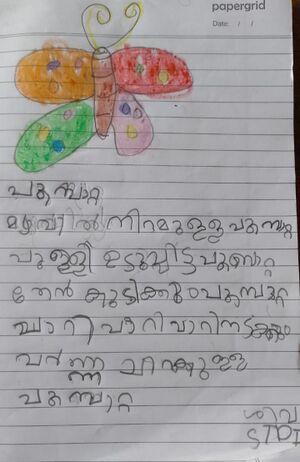 papergrid
Date: / /
പൂമ്പാറ്റ
മഴവിൽ നിറമുള്ള പൂമ്പാറ്റ
പുള്ളി ഉടുപ്പിട്ട പൂമ്പാറ്റ
തേൻ കുടിക്കും പൂമ്പാറ്റ
പാറി പാറി പാറിനടക്കും
വർണ്ണ ചിറകുള്ള
പൂമ്പാറ്റ
ശിവ
STD I